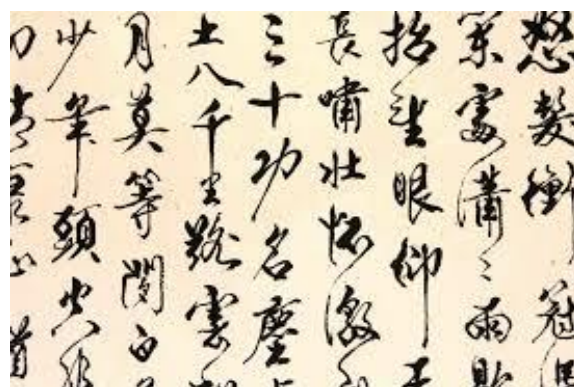 怒髮衝冠
處瀟〻雨歇
抬望眼仰天
長嘯壯懷激
三十功名塵
土八千里路雲
月莫等閒白
少年頭空
切靖康恥猶